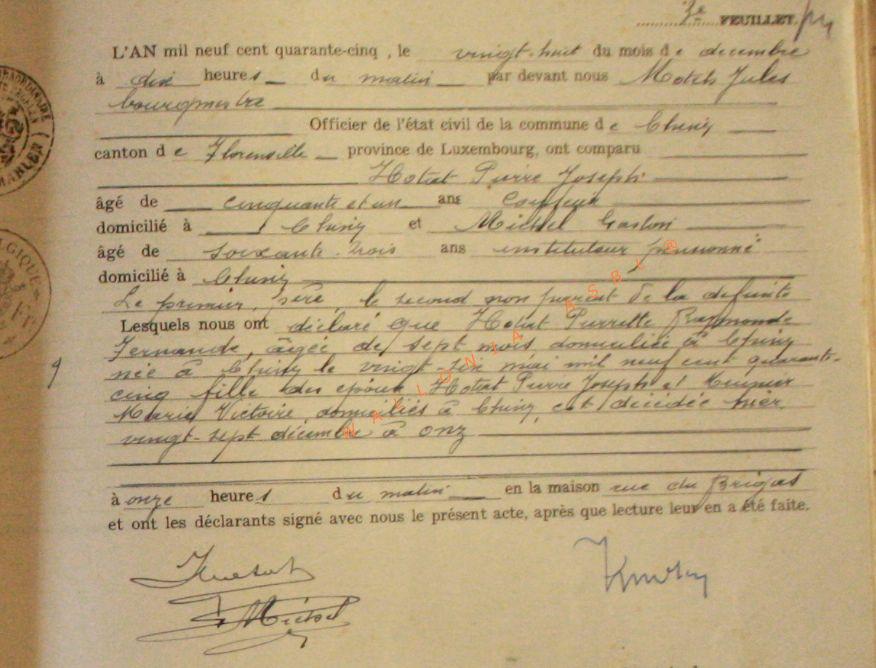 3e FEUILLET.
L'AN mil neuf cent quarante-cinq, le vingt-huit du mois de décembre
à dix heures du matin par devant nous Jules
bourgmestre
Officier de l'état civil de la commune de Chiny
canton de Florenville province de Luxembourg, ont comparu
Hotat Pierre Joseph
âgé de cinquante et un ans
domicilié à Chiny et Michel Gaston
âgé de soixante-trois ans instituteur pensionné
domicilié à Chiny
Le premier, père, le second non parent de la défunte
Lesquels nous ont déclaré que Hotat Pierrette Raymonde
Fernande, âgée de sept mois, domiciliée à Chiny
née à Chiny le vingt six mai mil neuf cent quarante-
cinq fille des époux Hotat Pierre Joseph et Meunier
Marie Victoire, domiciliés à Chiny, est décédée hier
vingt-sept décembre à onz
à onze heures du matin en la maison rue du
et ont les déclarants signé avec nous le présent acte, après que lecture leur en a été faite.
G Michel
9
WALLONIA ASBL ©